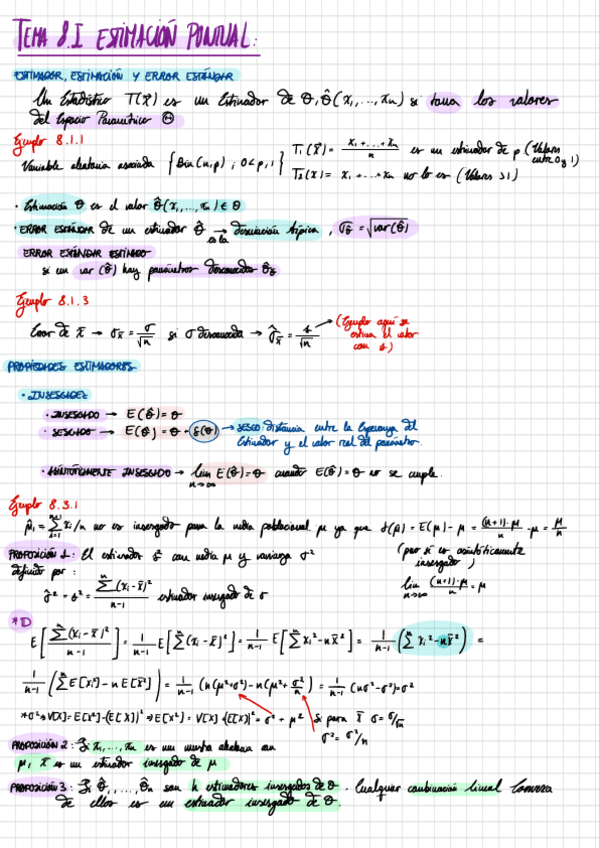 TEMA 8.I ESTIMACIÓN PUNTUAL:
ESTIMADOR, ESTIMACIÓN Y ERROR ESTÁNDAR
Un Estadístico T(x⃗) es un Estimador de θ, θ̂(x₁,...,xₙ) si toma los valores
del Espacio Paramétrico Θ
Ejemplo 8.1.1
Variable aleatoria asociada {Bin(n,p); 0<p<1}
T₁(x⃗) = (x₁+...+xₙ)/n es un estimador de p (Valores entre 0 y 1)
T₂(x) = x₁+...+xₙ no lo es (Valores >1)
· Estimación θ es el valor θ̂(x₁,...,xₙ) ∈ Θ
· ERROR ESTÁNDAR de un estimador θ̂ → es la desviación típica, σ_θ̂ = √var(θ̂)
ERROR ESTÁNDAR ESTIMADO
si en var(θ̂) hay parámetros desconocidos
Ejemplo 8.1.3
Error de x̄ → σ_x̄ = σ/√n si σ desconocida → σ̂_x̄ = s/√n → (Ejemplo aquí se
estima el valor
con s)
PROPIEDADES ESTIMADORES
· INSESGADEZ
· INSESGADO → E(θ̂) = θ
· SESGADO → E(θ̂) = θ + δ(θ) → SESGO: distancia entre la Esperanza del
Estimador y el valor real del parámetro.
· ASINTÓTICAMENTE INSESGADO → lim n→∞ E(θ̂) = θ cuando E(θ̂) = θ no se cumple.
Ejemplo 8.3.1
no es insesgado para la media poblacional μ ya que δ(μ̂) = E(μ̂) - μ = (n+1)·μ/n - μ = μ/n
PROPOSICIÓN 1: El estimador s² con media μ y varianza σ²
(pero sí es asintóticamente
insesgado)
definido por:
σ̂² = s² = Σ(xᵢ-x̄)²/(n-1) estimador insesgado de σ
lim n→∞ (n+1)·μ/n = μ
*D
E[Σ(xᵢ-x̄)²/(n-1)] = 1/(n-1) E[Σ(xᵢ-x̄)²] = 1/(n-1) E[Σxᵢ²-nx̄²] = 1/(n-1) (Σxᵢ²-nx̄²) =
1/(n-1) (ΣE[xᵢ²]-nE[x̄²]) = 1/(n-1) (n(μ²+σ²)-n(μ²+σ²/n)) = 1/(n-1) (nσ²-σ²) = σ²
*σ² → V[X] = E[x²]-(E[X])² ⇒ E[x²] = V[X]+(E[X])² = σ²+μ² Si para x̄ σ = σ/√n
σ² = σ²/n
PROPOSICIÓN 2: Si x₁,...,xₙ es una muestra aleatoria con
μ, x̄ es un estimador insesgado de μ
PROPOSICIÓN 3: Si θ̂₁,...,θ̂ₖ son k estimadores insesgados de θ. Cualquier combinación lineal convexa
de ellos es un estimador insesgado de θ.